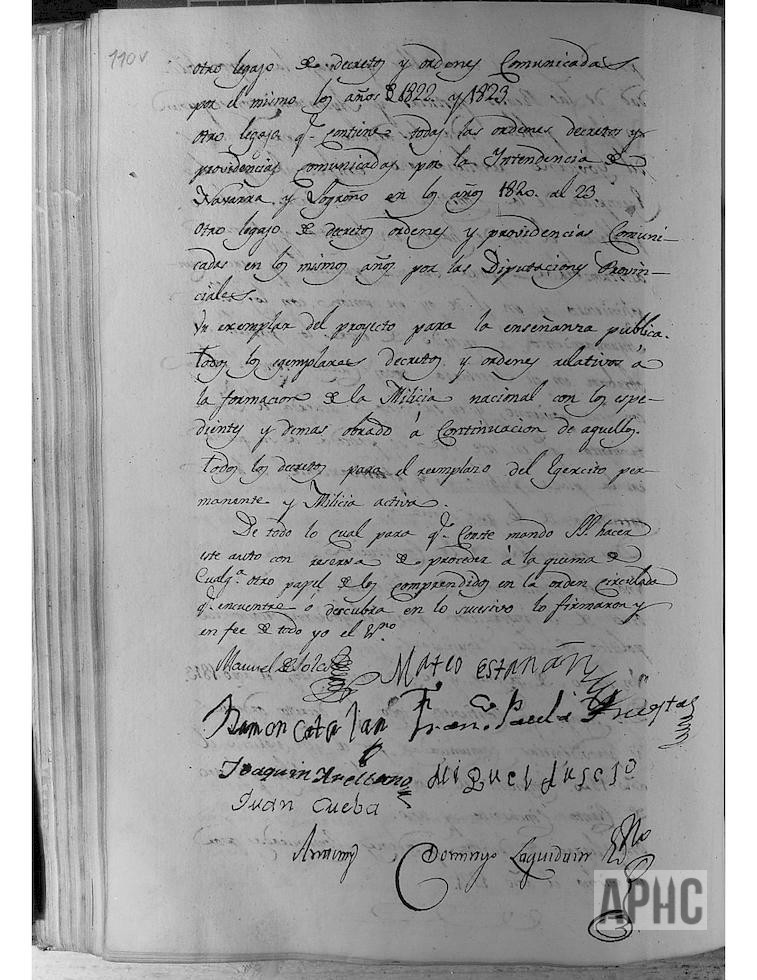 110v
otro legajo de decretos y ordenes Comunicadas
por el mismo los años de 1822 y 1823
otro legajo q.e contiene todas las ordenes decretos y
providencias comunicadas por la Intendencia de
Navarra y Logroño en los años 1820 al 23.
otro legajo de decretos ordenes y providencias Comuni-
cadas en los mismos años por las Diputaciones Provin-
ciales.
Un exemplar del proyecto para la enseñanza publica.
todos los egemplares decretos y ordenes relativos á
la formacion de la Milicia nacional con los espe-
dientes y demas obrado á Continuacion de aquellos.
todos los decretos para el reemplazo del Egercito per-
manente y Milicia activa.
De todo lo cual para q.e Conste mando SS. hacer
este auto con reserva de proceder á la quema de
Cualq.a otro papel de los comprendidos en la orden circulada
q.e encuentre ó descubra en lo sucesivo lo firmaron y
en fee de todo yo el Es.no
Manuel de
Mateo Estanán
Ramon Catalan
Fran.co Paula Huestas
Joaquin Arellano
Miguel
Juan Cueba
Antemi
Domingo Laquiduin Es.no
APHC